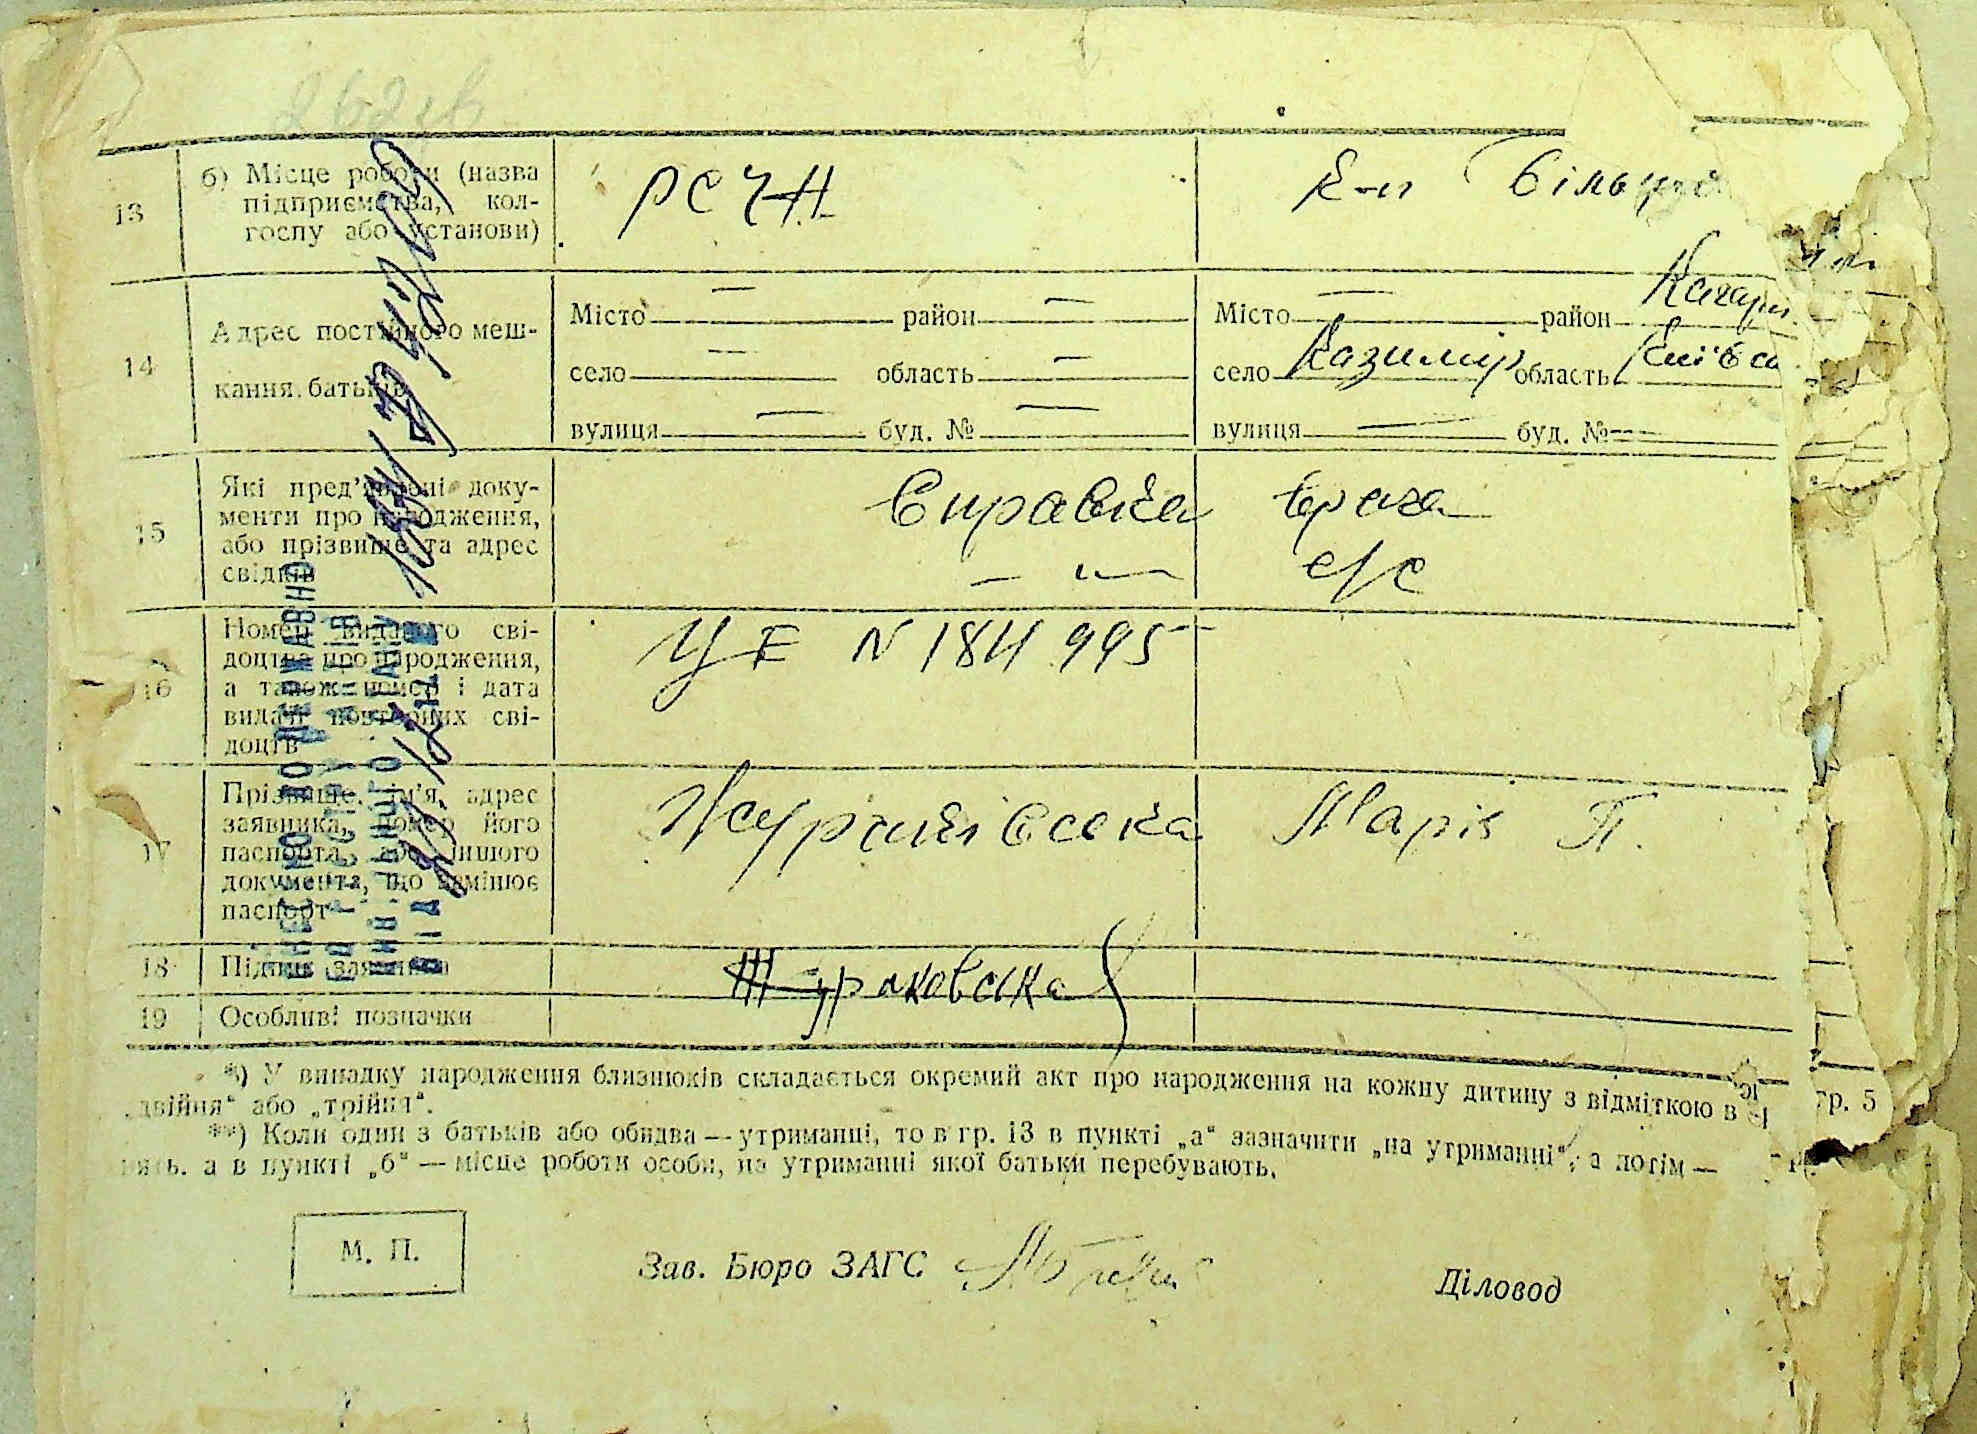 262 зв
13 б) Місце роботи (назва
підприємства, кол-
госпу або установи)
РСЧА
К-п Більшо
14 Адрес постійного меш-
кання батьків
Місто — район —
село — область —
вулиця — буд. № —
Місто — район Кагарл.
село Казимир область Київс
вулиця — буд. № —
15 Які пред'явлені доку-
менти про народження,
або прізвище та адрес
свідків
Справка врача
— " — с/с
16 Номер виданого сві-
доцтва про народження,
а також номер і дата
видачі повторних сві-
доцтв
N 184 995
17 Прізвище, ім'я, адрес
заявника, номер його
паспорта, або іншого
документа, що замінює
паспорт
Жураківська Марія П.
18 Підпис заявника
Жураковська
19 Особливі позначки
*) У випадку народження близнюків складається окремий акт про народження на кожну дитину з відміткою в гр. 5
„двійня“ або „трійня“.
**) Коли один з батьків або обидва — утриманці, то в гр. 13 в пункті „а“ зазначити „на утриманні“, а потім —
а в пункті „б“ — місце роботи особи, на утриманні якої батьки перебувають.
М. П.
Зав. Бюро ЗАГС
Діловод